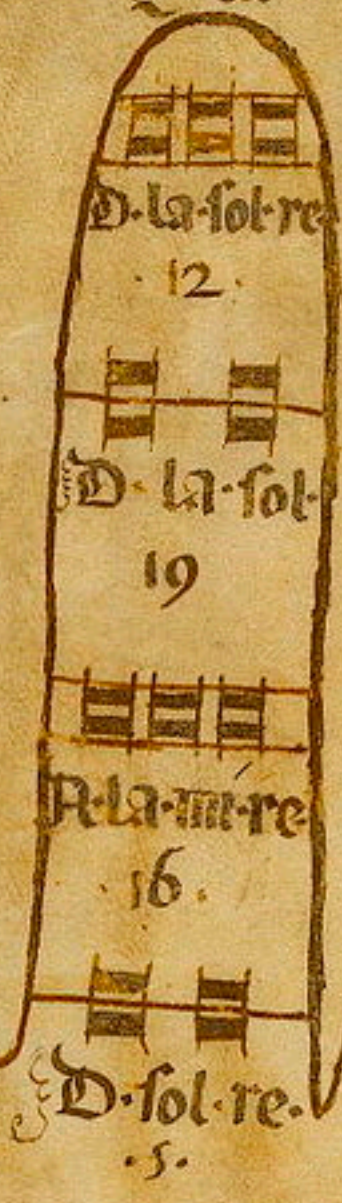 D·la·sol·re·
·12·
D·la·sol·
19
A·la·mi·re·
·16·
D·sol·re·
·5·